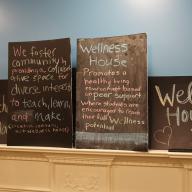 We foster
community by
providing a collaborative
ative space for
diverse interests
to teach, learn,
and make.
Wellness
House
Promotes a
healthy living
environment based
on peer support
Where students are
encouraged to reach
their full Wellness
potential
Well
Hou